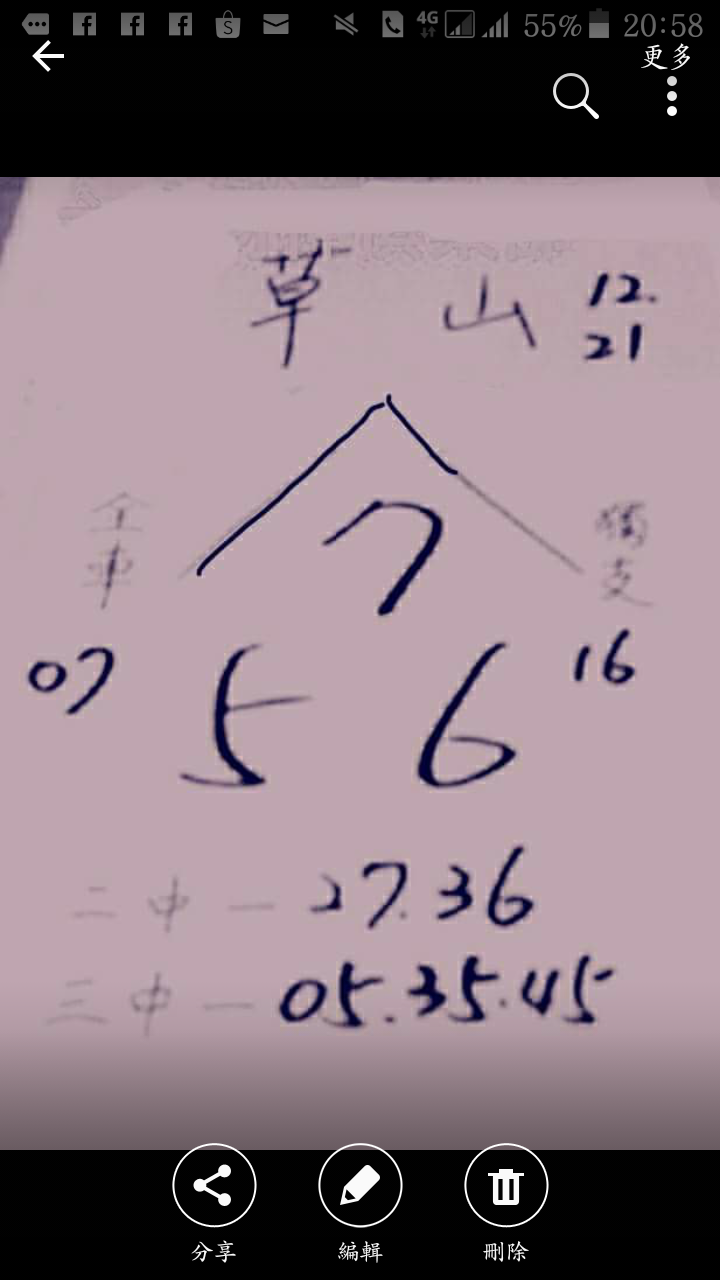 55% 20:58
4G
更多
草 山 12.
21
全車 7 獨支
07 5 6 16
二中一27.36
三中一05.35.45
分享 編輯 刪除